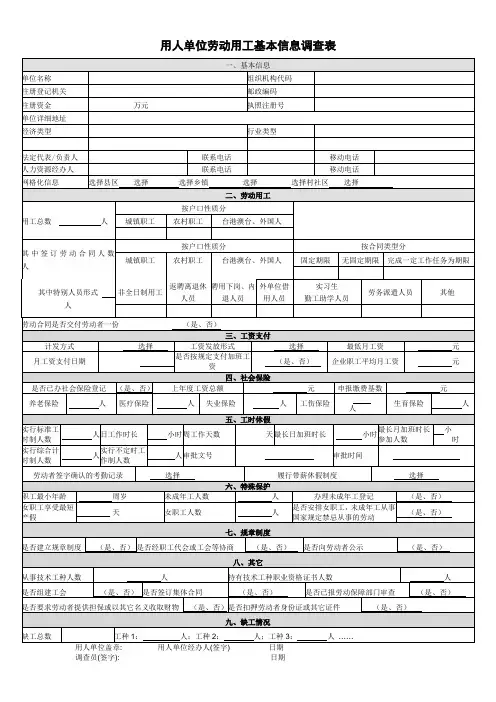 用人单位劳动用工基本信息调查表
一、基本信息
单位名称 组织机构代码
注册登记机关 邮政编码
注册资金 万元 执照注册号
单位详细地址
经济类型 行业类型
法定代表/负责人 联系电话 移动电话
人力资源经办人 联系电话 移动电话
网格化信息 选择县区 选择 选择乡镇 选择 选择村社区 选择
二、劳动用工
按户口性质分
用工总数 人 城镇职工 农村职工 台港澳台、外国人
其中签订劳动合同人数 人 按户口性质分 按合同类型分
城镇职工 农村职工 台港澳台、外国人 固定期限 无固定期限 完成一定工作任务为期限
其中特别人员形式 人 非全日制用工 返聘离退休人员 聘用下岗、内退人员 外单位借用人员 实习生勤工助学人员 劳务派遣人员 其他
劳动合同是否交付劳动者一份 （是、否）
三、工资支付
计发方式 选择 工资发放形式 选择 最低月工资 元
月工资支付日期 是否按规定支付加班工资 （是、否） 企业职工平均月工资 元
四、社会保险
是否已办社会保险登记 （是、否） 上年度工资总额 元 申报缴费基数 元
养老保险 人 医疗保险 人 失业保险 人 工伤保险 人 生育保险 人
五、工时休假
实行标准工时制人数 人 日工作时长 小时 周工作天数 天 最长日加班时长 小时 最长月加班时长参加人数 小时
实行综合计时制人数 人 实行不定时工作制人数 人 审批文号 审批时间
劳动者签字确认的考勤记录 选择 履行带薪休假制度 选择
六、特殊保护
职工最小年龄 周岁 未成年工人数 人 办理未成年工登记 （是、否）
女职工享受最短产假 天 女职工人数 人 是否安排女职工，未成年工从事国家规定禁忌从事的劳动 （是、否）
七、规章制度
是否建立规章制度 （是、否） 是否经职工代会或工会等协商 （是、否） 是否向劳动者公示 （是、否）
八、其它
从事技术工种人数 人 持有技术工种职业资格证书人数 人
是否组建工会 （是、否） 是否签订集体合同 （是、否） 是否已报劳动保障部门审查 （是、否）
是否要求劳动者提供担保或以其它名义收取财物 （是、否） 是否扣押劳动者身份证或其它证件 （是、否）
九、缺工情况
缺工总数 工种1： 人；工种2： 人；工种3： 人 ……
用人单位盖章: 用人单位经办人(签字) 日期
调查员(签字): 日期